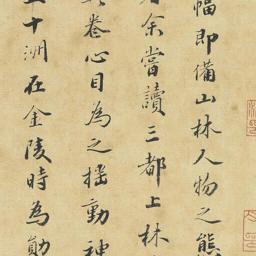 幅即備山林人物之態
余嘗讀三都上林
卷心目為之搖動神
十洲在金陵時為勛